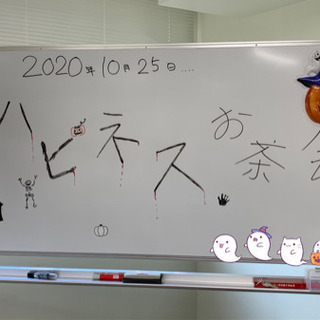 2020年10月25日....
ハピネスお茶会